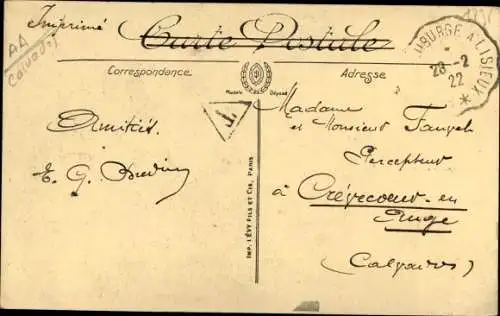 Imprimé
Carte Postale
Correspondance
Adresse
Modèle Déposé
UBURGE A LISIEUX
28 -2
22
T
Amitiés
E. G.
IMP. LÉVY FILS ET CIE, PARIS
Madame
et Monsieur
Percepteur
à Crèvecœur-en
Auge
(Calvados)
AA
Calvados